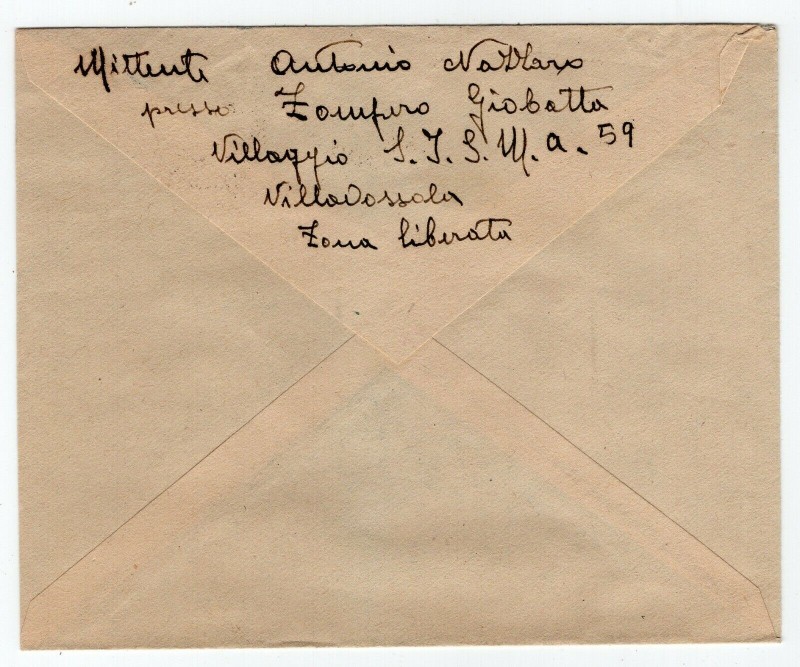 Mittente Antonio
presso Zompero Giobatta
Villaggio S.I.S.M.a. 59
Villadossola
Zona liberata